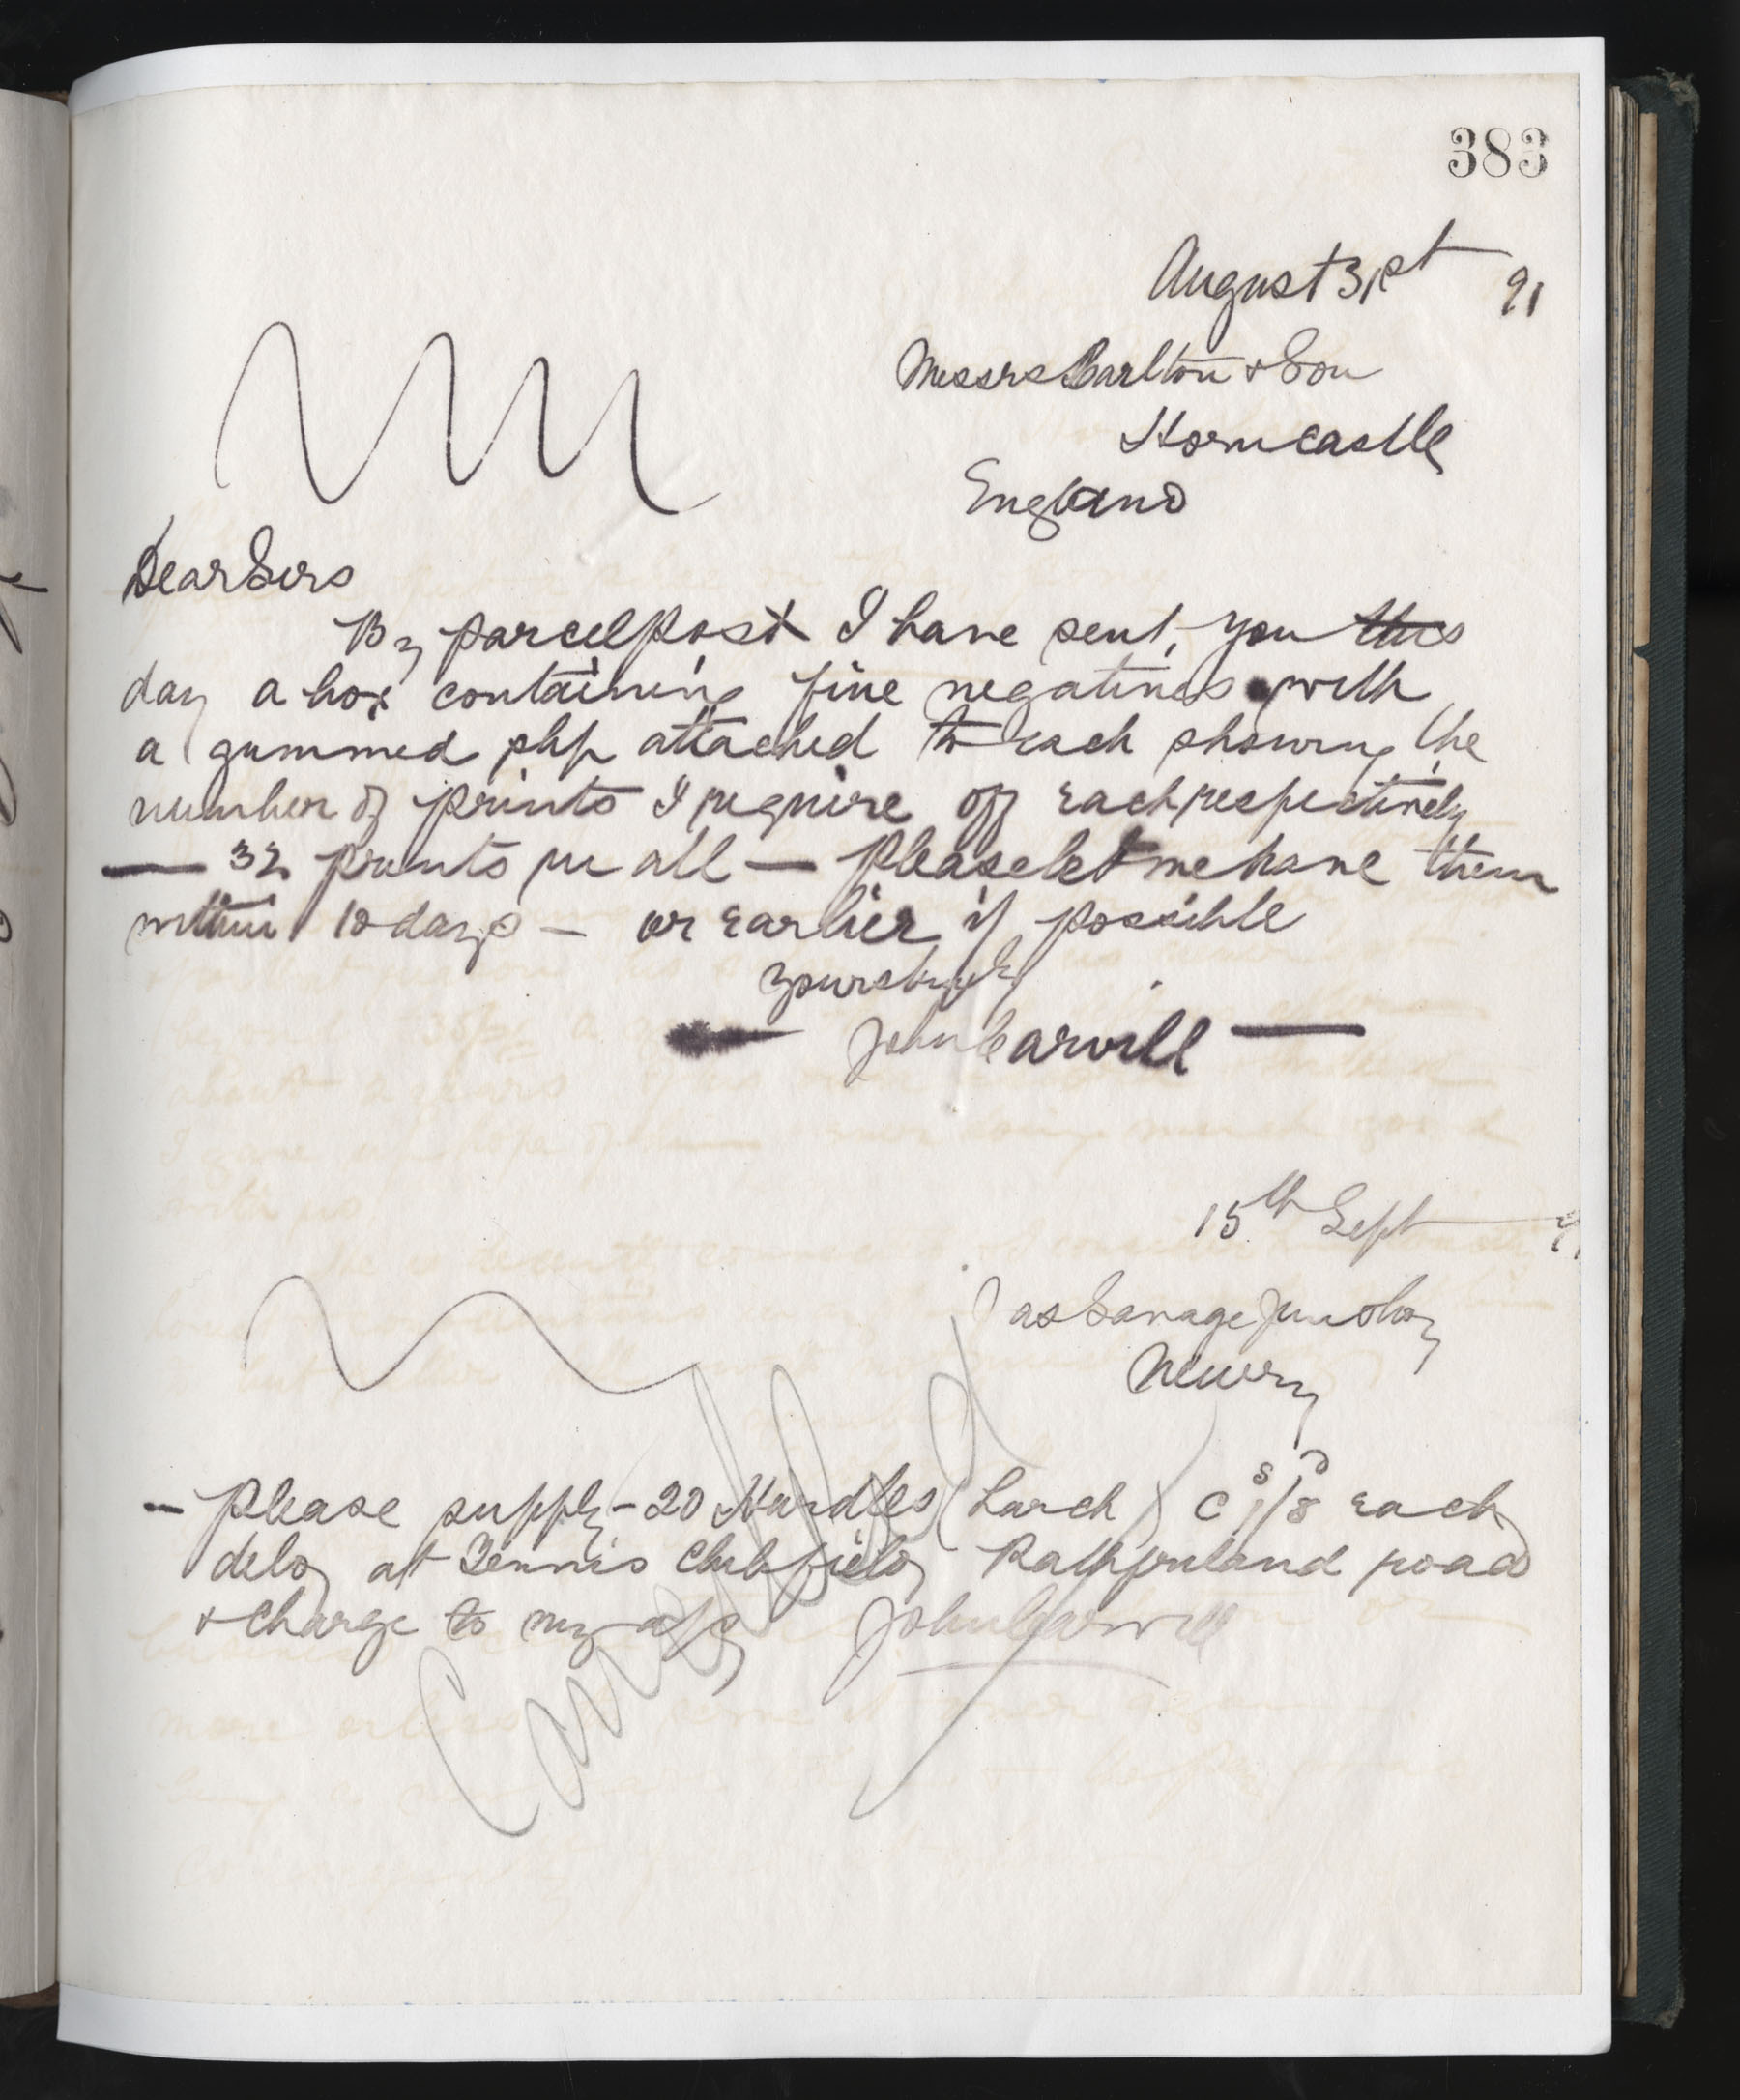 383
August 31st 91
Messrs Carlton & Son
Horncastle
England
Dear Sirs
By parcel post I have sent, you this
day a box containing five negatives with
a gummed slip attached to each showing the
number of prints I require off each respectively
— 32 prints in all — please let me have them
within 10 days — or earlier if possible
yours truly
— John Carvill —
15th Sept 91
Jas Savage Jun
Newry
- Please supply - 20 Hurdles (Larch) @ 1s/8d each
deld at Tennis Club field Rathfriland road
& charge to my a/c John Carvill
Cancelled